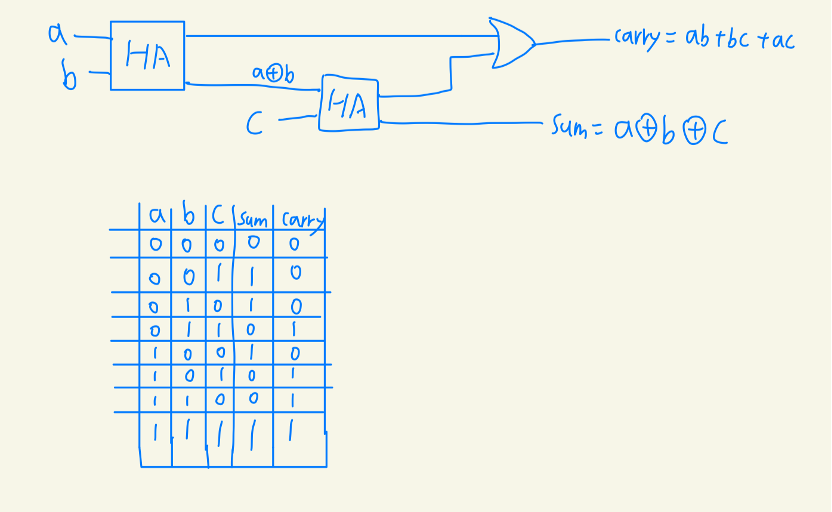 a
HA
b
a⊕b
HA
C
carry = ab+bc+ac
sum = a⊕b⊕c
a b c sum carry
0 0 0 0 0
0 0 1 1 0
0 1 0 1 0
0 1 1 0 1
1 0 0 1 0
1 0 1 0 1
1 1 0 0 1
1 1 1 1 1